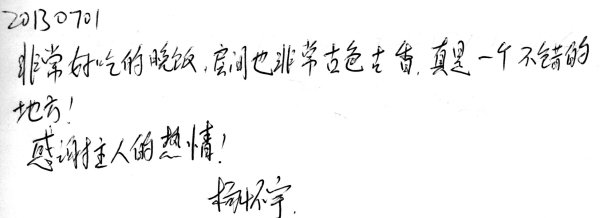 20130701
非常好吃的晚饭,房间也非常古色古香,真是一个不错的
地方!
感谢主人的热情!